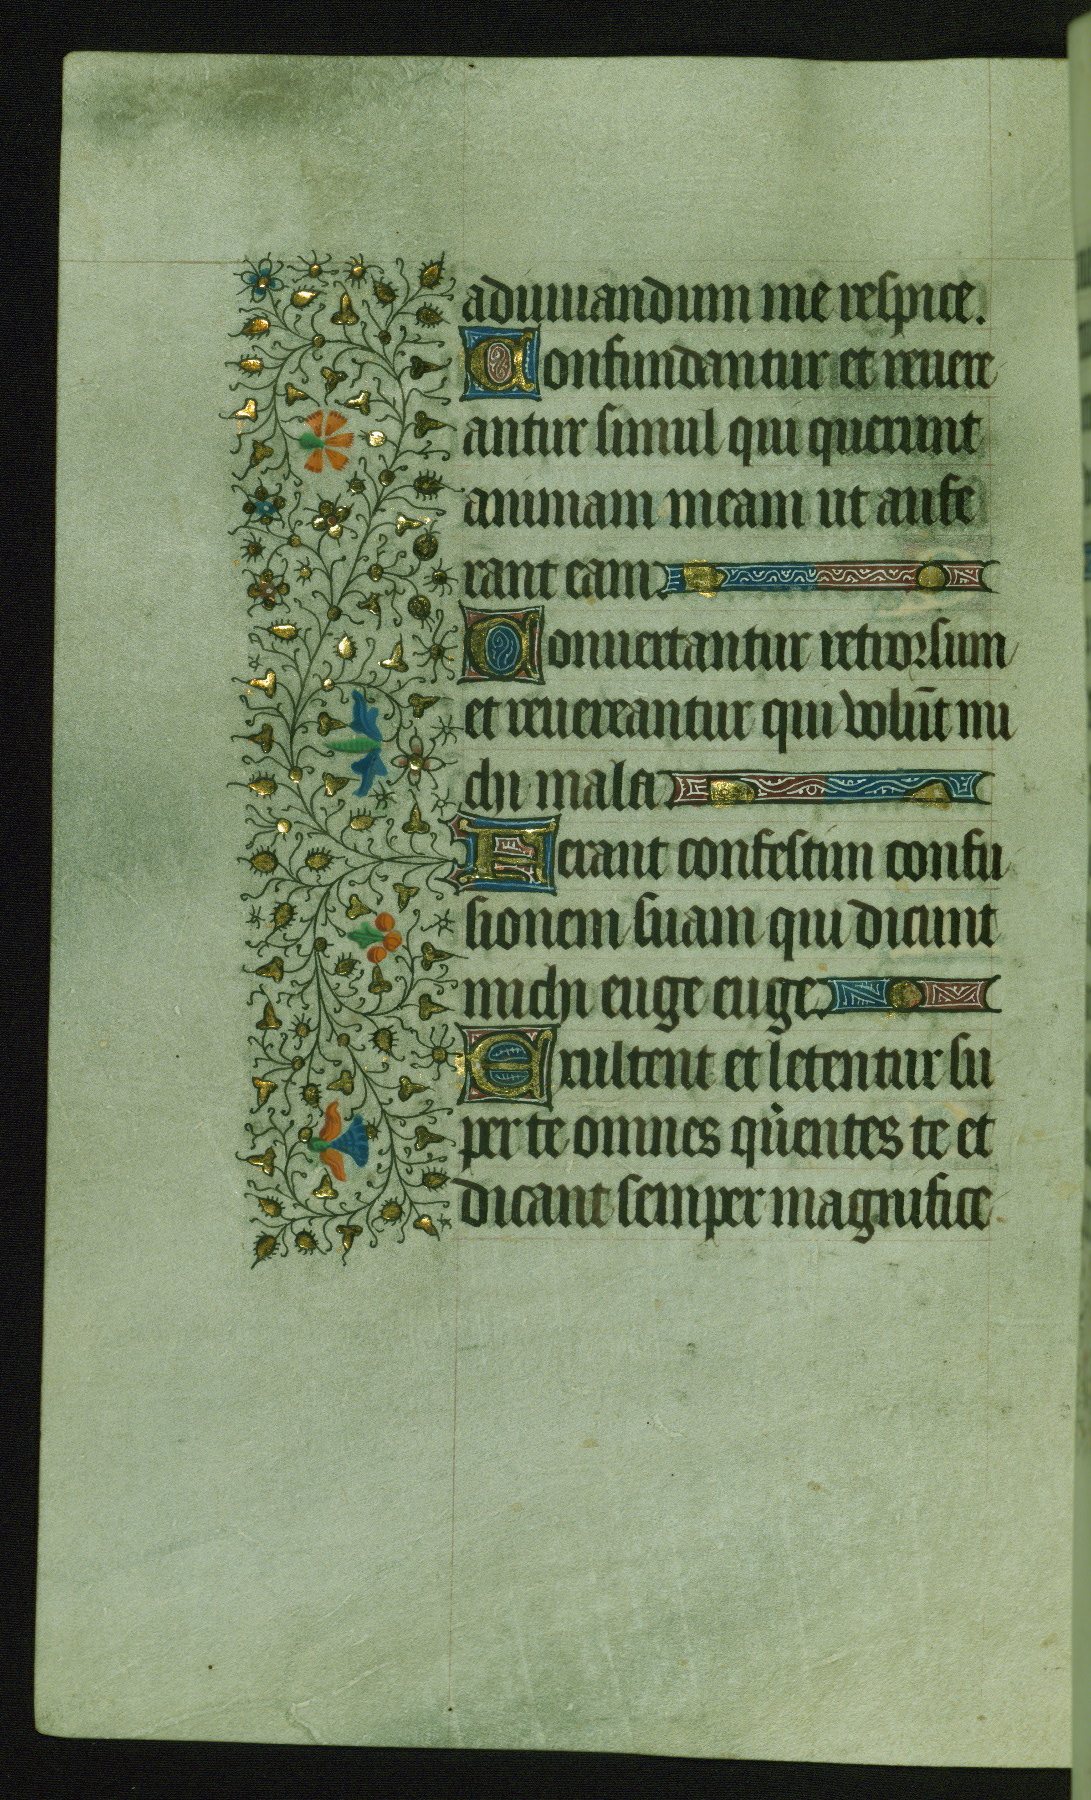 adiuuandum me respice.
Confundantur et reuere
antur simul qui querunt
animam meam ut aufe
rant eam.
Conuertantur retrorsum
et reuereantur qui volūt mi
chi mala
Ferant confestim confu
sionem suam qui dicunt
michi euge euge.
Exultent et letentur su
per te omnes qͥentes te et
dicant semper magnifice